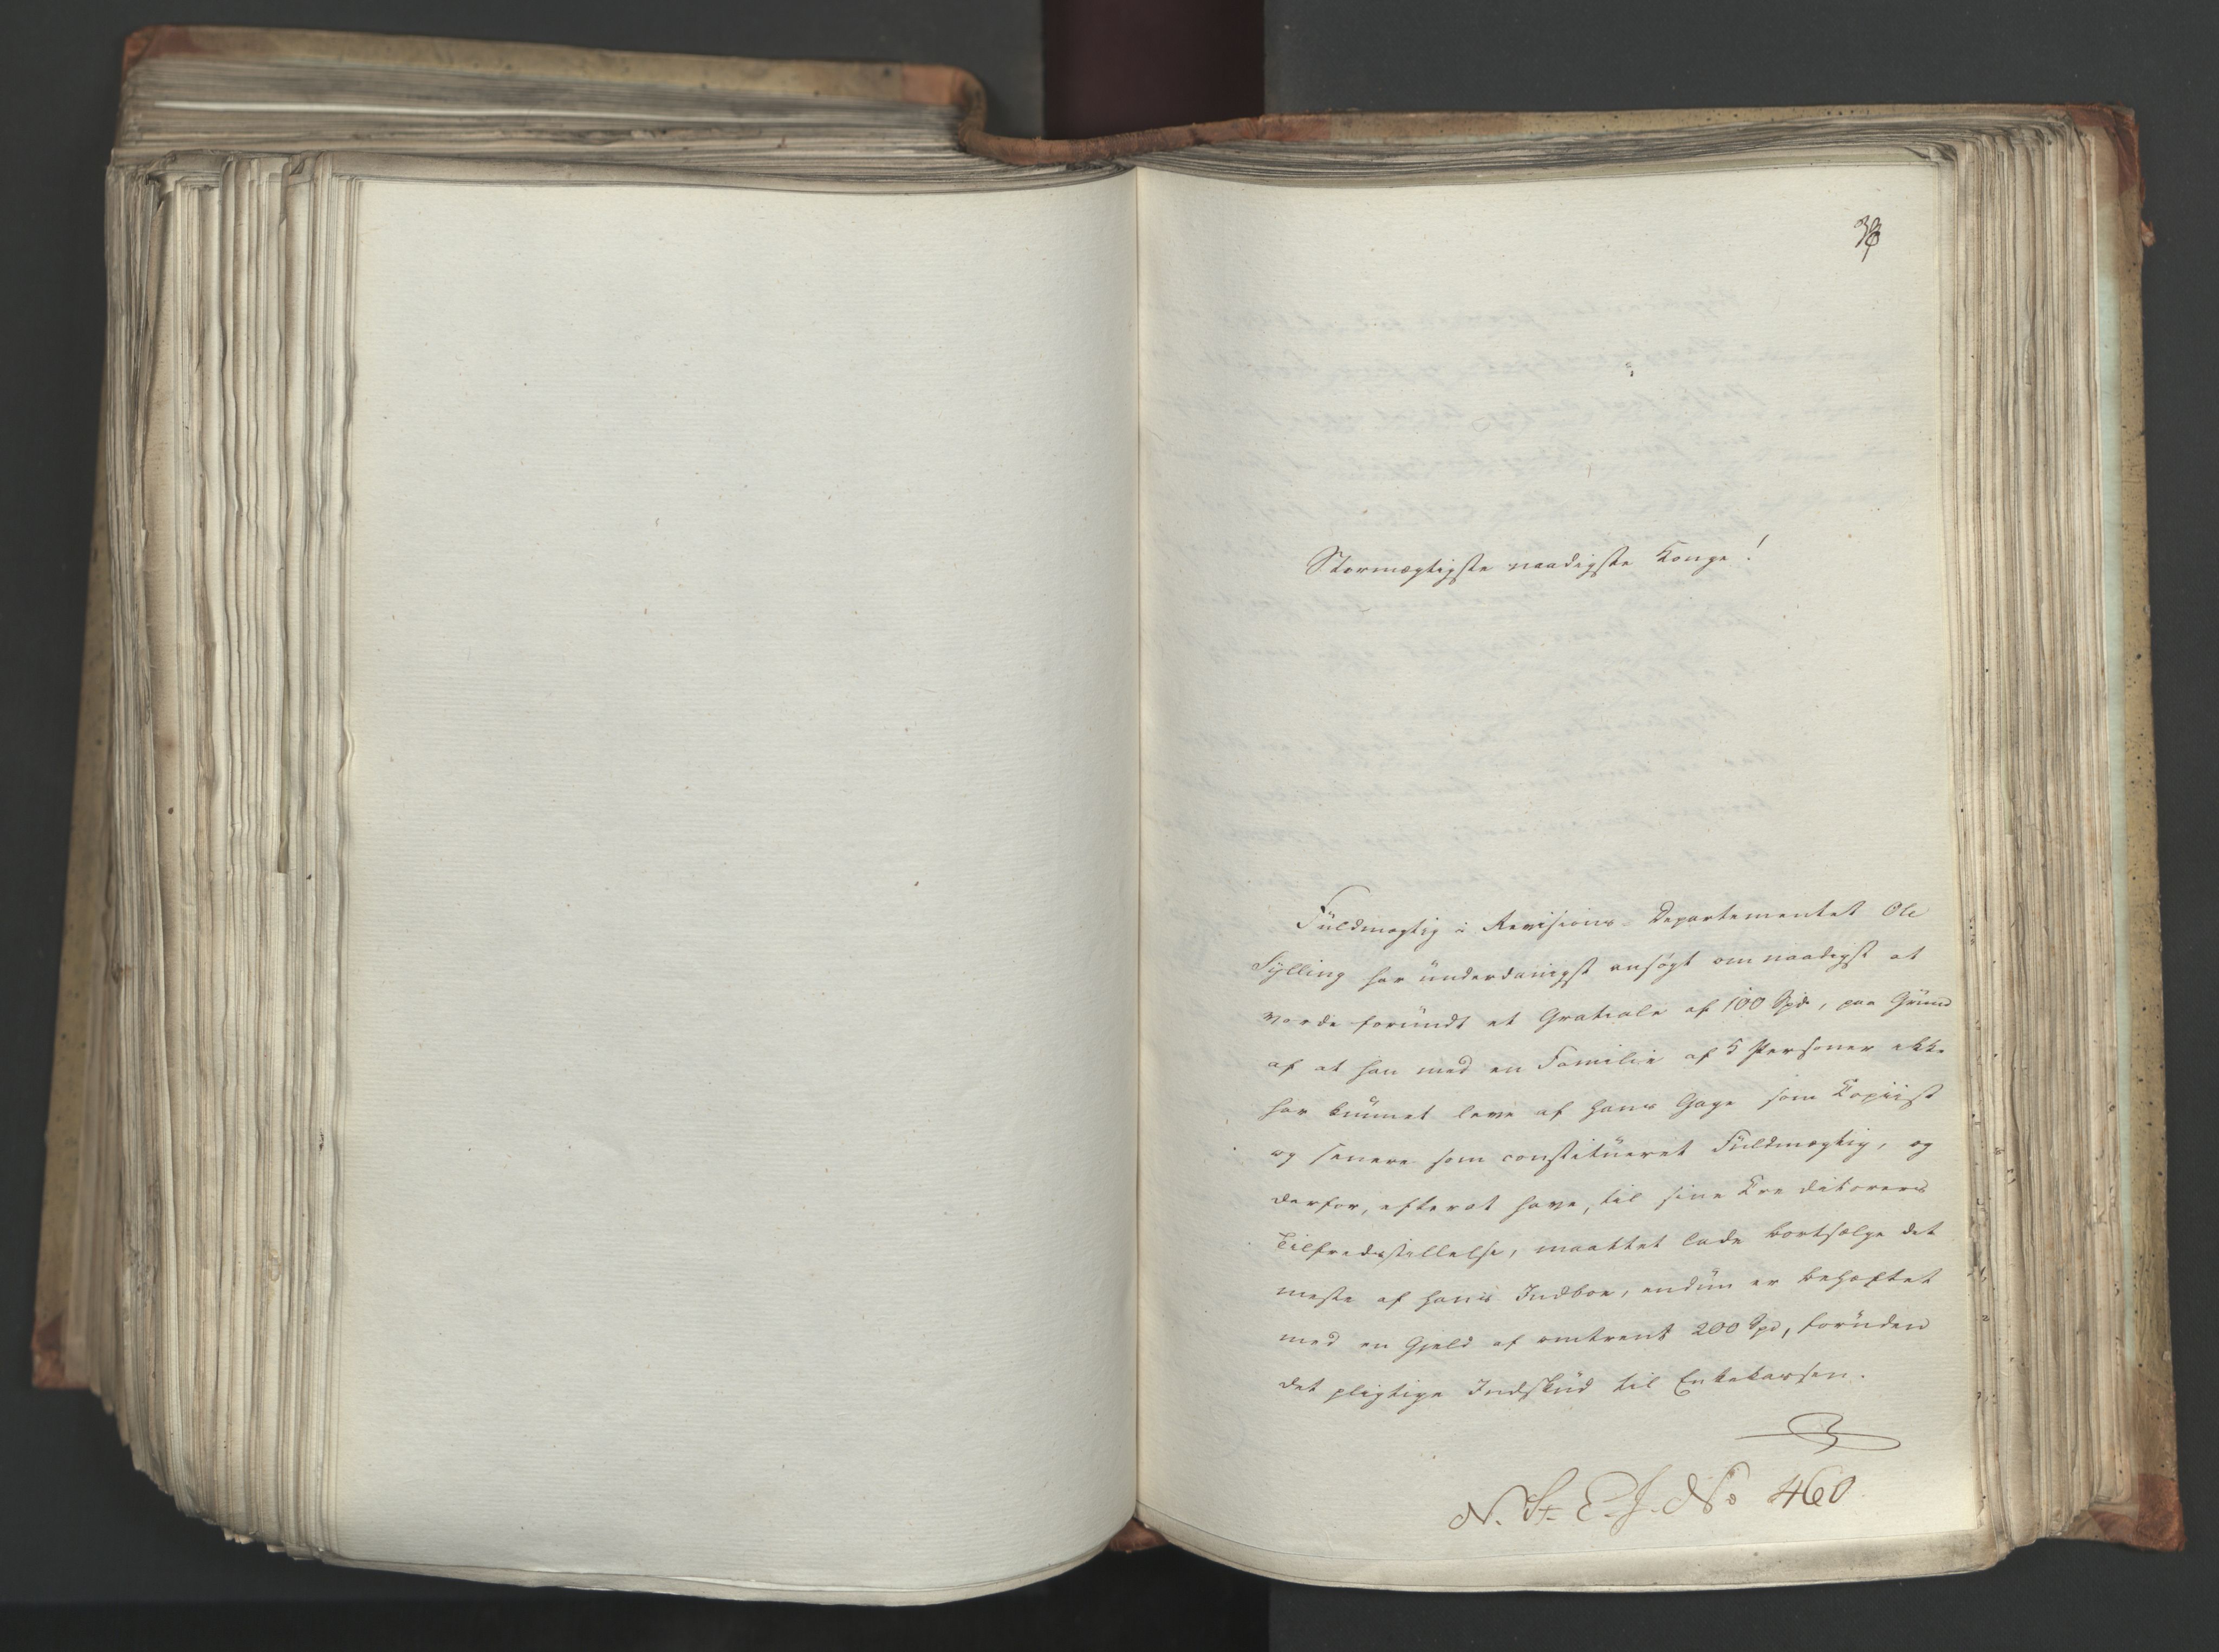 Stormægtigste naadigste Konge!
Fuldmægtig i Revisions-Departementet Ole
Sylling har underdanigst ansøgt om naadigst at
vorde forundt et Gratiale af 100 Spd, paa Grund
af at han med en Familie af 5 Personer ikke
har kunnet leve af hans Gage som Copiist
og senere som constitueret Fuldmægtig, og
derfor, efter at have, til sine Creditorers
Tilfredsstillelse, maattet lade bortsælge det
meste af hans Indboe, endnu er behæftet
med en Gjeld af omtrent 200 Spd, foruden
det pligtige Indskud til Enkekassen.
N. St. E. J. No 460